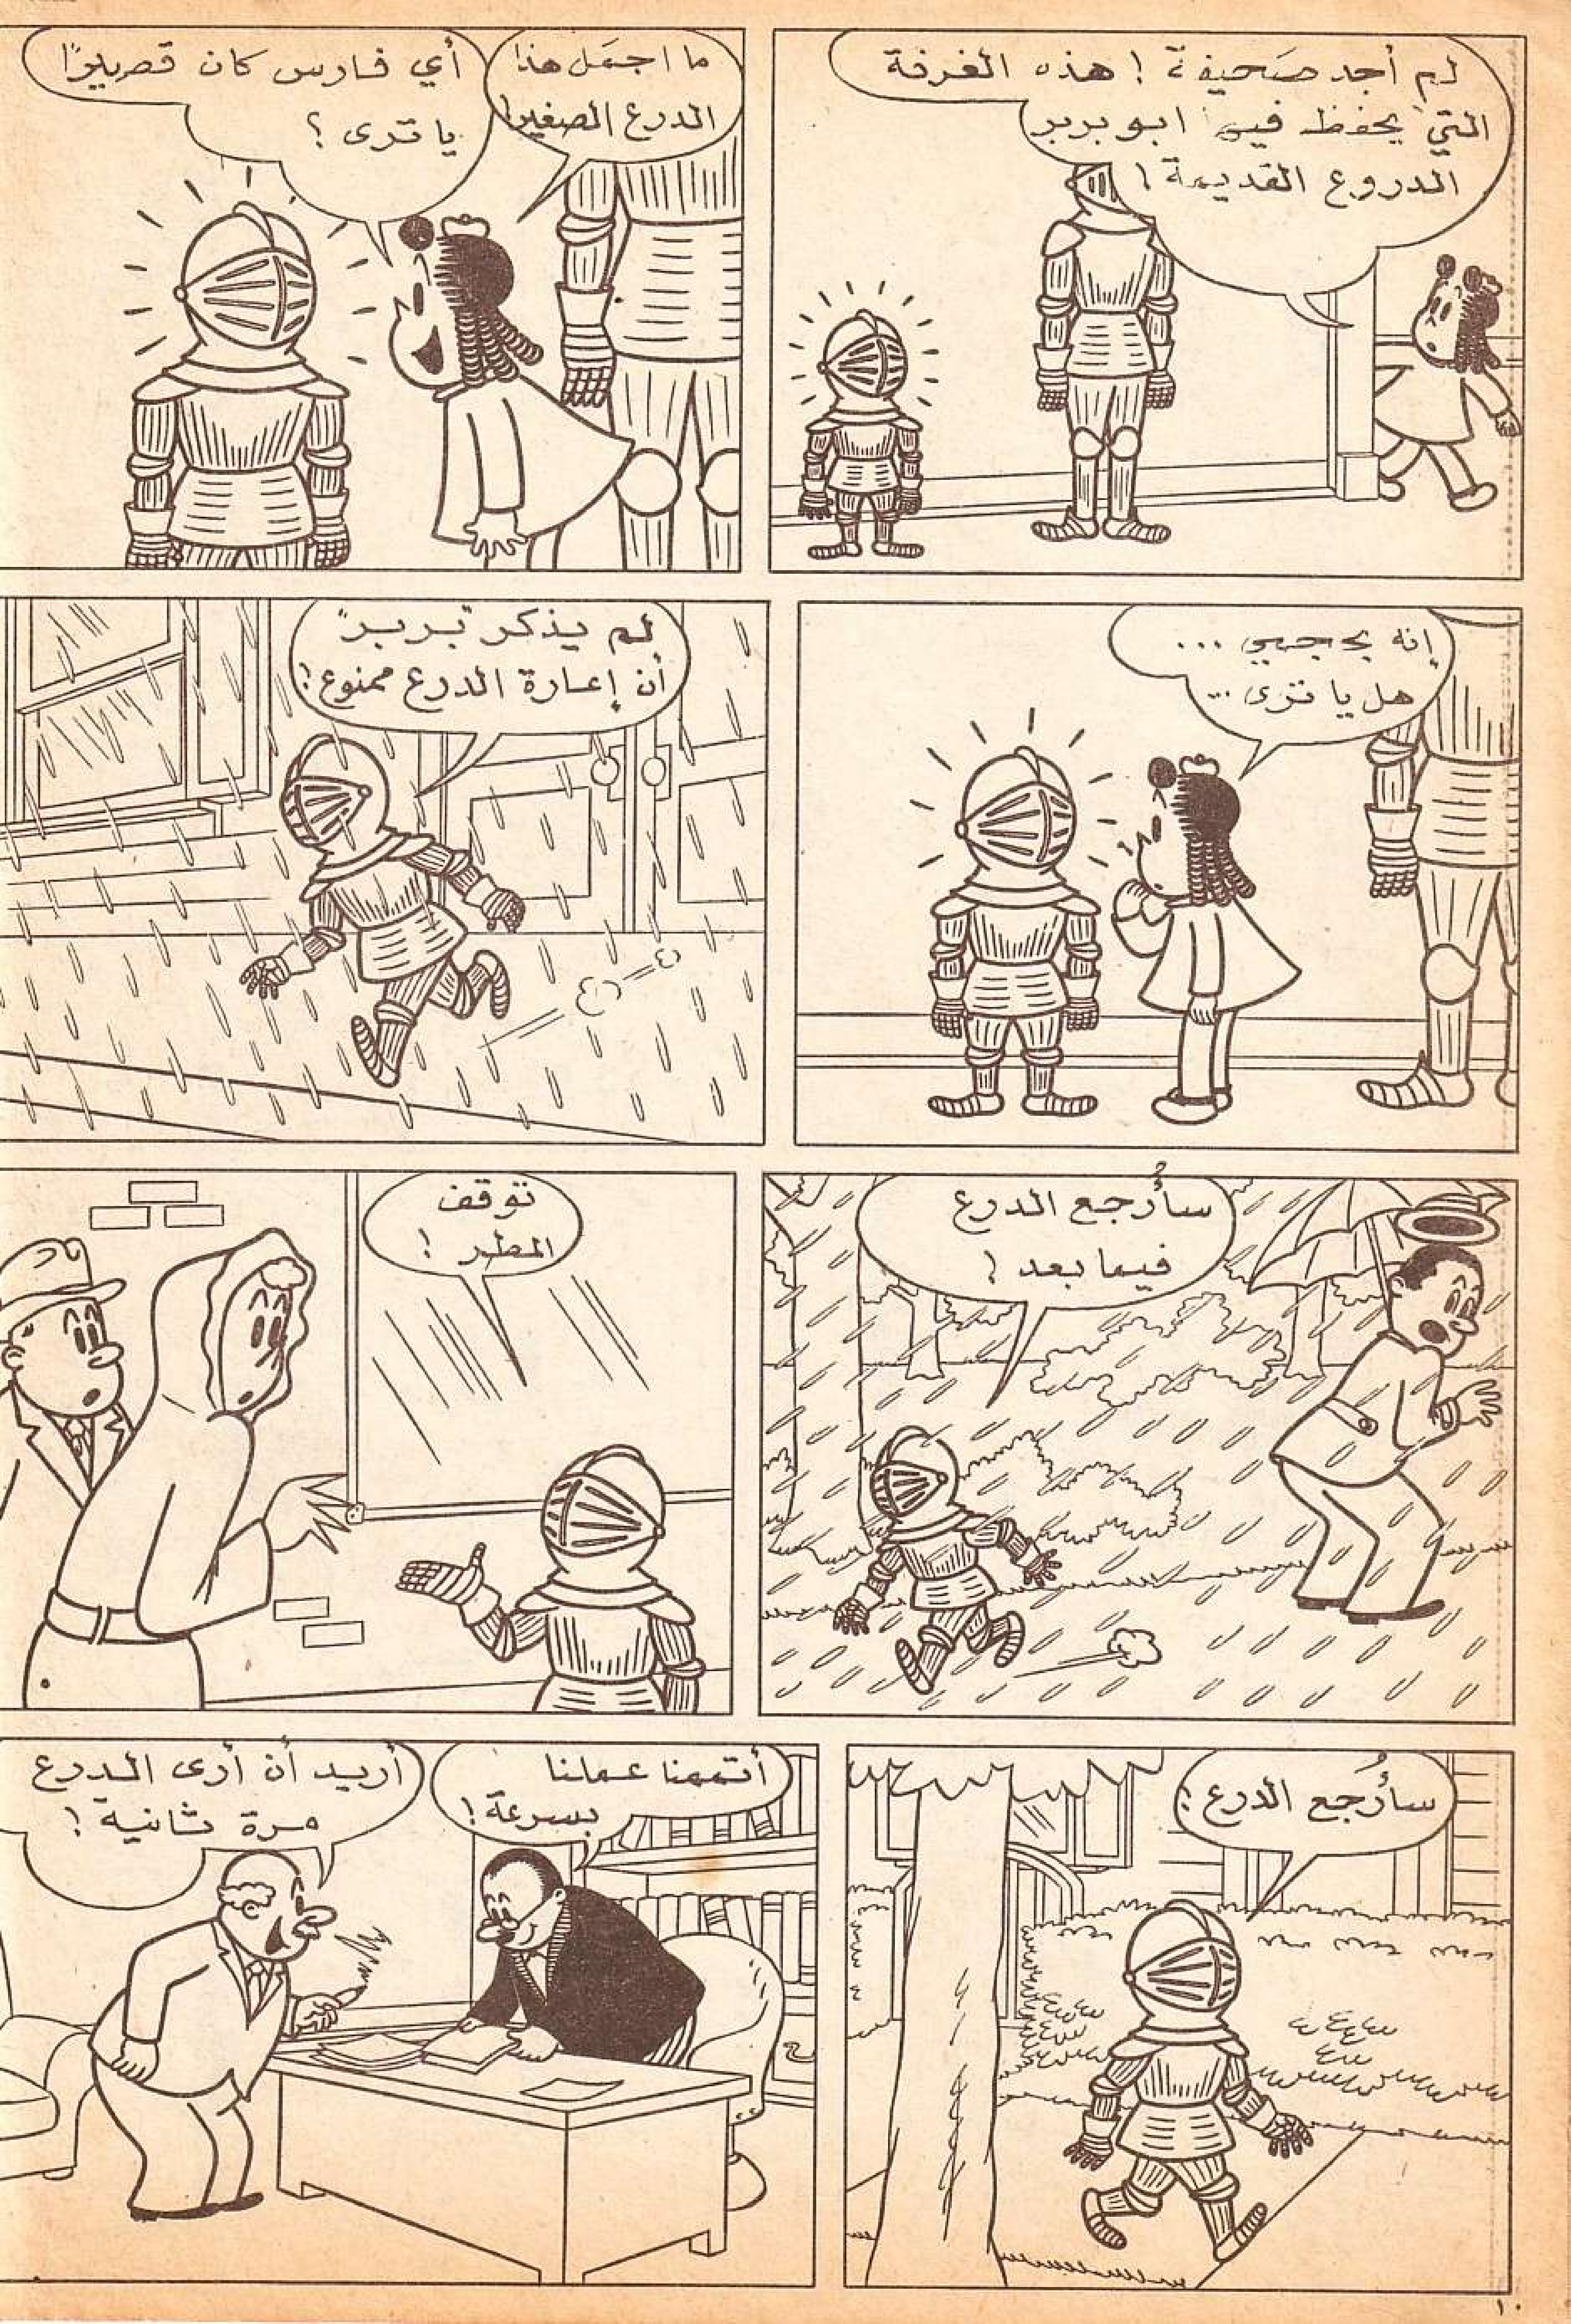 لم أجد صحيفة ! هذه الغرفة
التي يحفظ فيها ابو بربر
الدروع القديمة !
ما اجمل هذا
الدرع الصغير!
أي فارس كان قصيرًا
يا ترى ؟
إنه بحجمي ...
هل يا ترى ...
لم يذكر "بربر"
أن إعارة الدرع ممنوع !
سأُرجع الدرع
فيما بعد !
توقف
المطر !
سأُرجع الدرع !
أتممنا عملنا
بسرعة !
أريد أن أرى الدرع
مرة ثانية !
١٠